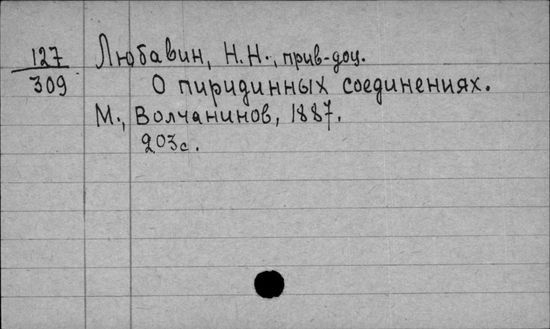 127
309
Любавин, Н.Н., прив-доц.
О пиридинных соединениях.
М., Волчанинов, 1887.
203с.